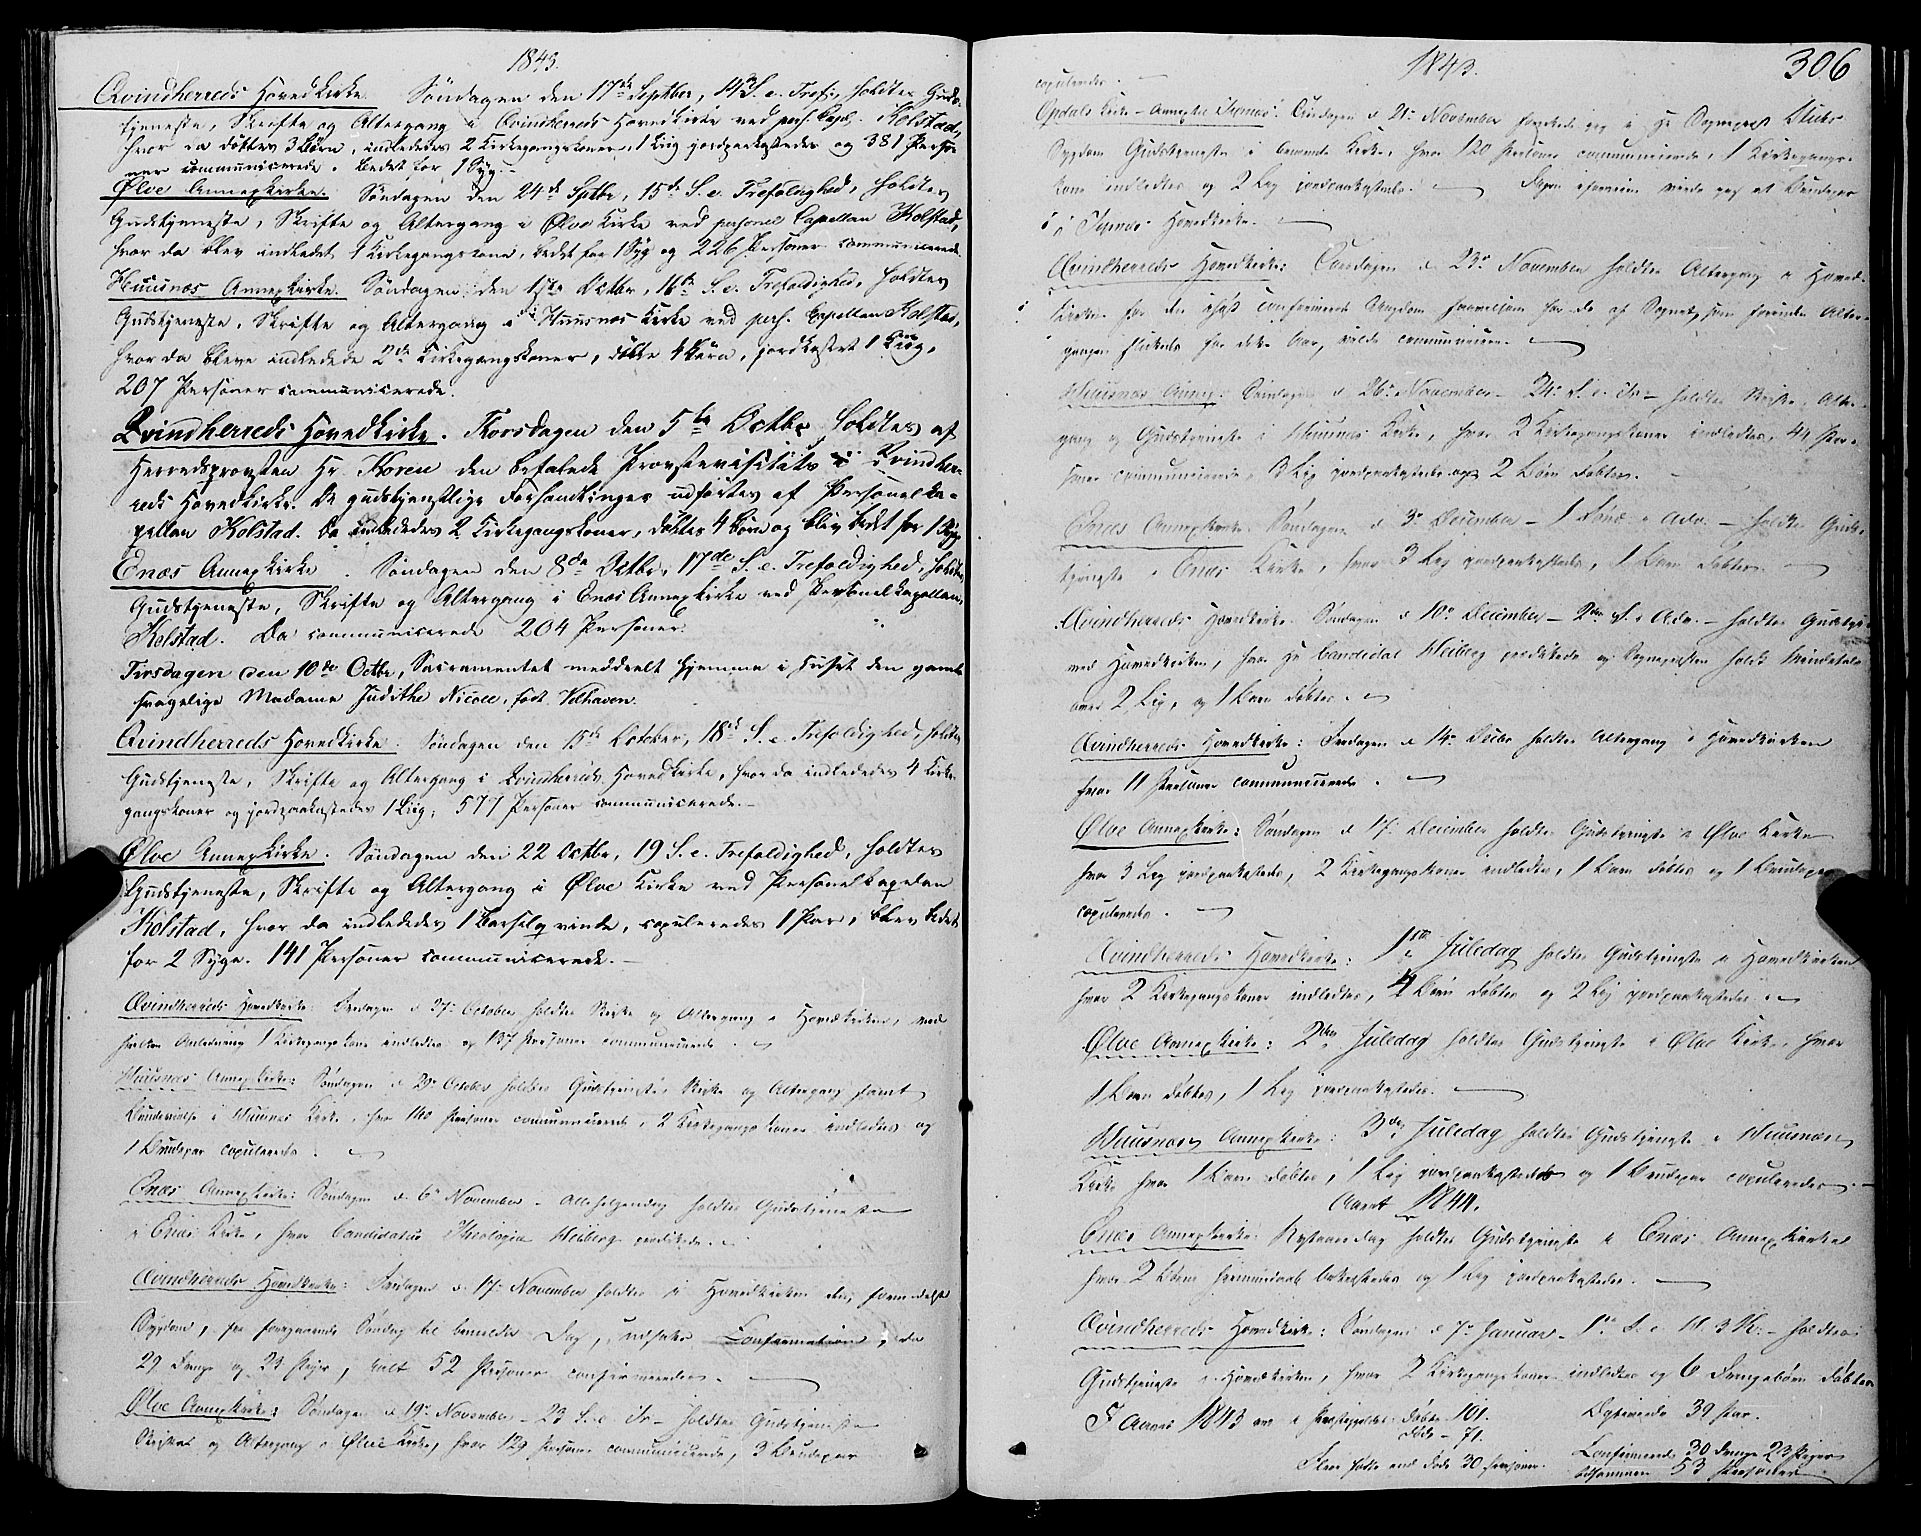 1843.
Qvindherreds Hovedkirke. Søndagen den 17de Septbr, 14 S. e. Tref., holdtes Guds-
tjeneste, Skrifte og Altergang i Qvindherreds Hovedkirke ved pers. Cap. Kolstad,
hvor da døbtes 3 Børn, indlededes 2 Kirkegangskoner, 1 Liig jordpaakastedes og 381 Perso-
ner communicerede. bedet for 1 Syg.
Ølve Annexkirke. Søndagen den 24de Septbr, 15de S. e. Trefoldighed, holdtes
Gudstjeneste, Skrifte og Altergang i Ølve Kirke ved personel Capellan Kolstad,
hvor da blev indledet 1 Kirkegangskone, bedet for 1 Syg og 226 Personer communicerede.
Huusnæs Annexkirke. Søndagen den 1ste Octbr, 16de S. e. Trefoldighed, holdtes
Gudstjeneste, Skrifte og Altergang i Huusnæs Kirke ved pers. Capellan Kolstad,
hvor da bleve indledede 2de Kirkegangskoner, døbte 4 Børn, jordkastet 1 Liig,
207 Personer communicerede.
Qvindherreds Hovedkirke. Torsdagen den 5te Octbr holdtes af
Herredsprovsten Hr. Koren den befalede Provstevisitats i Qvindher-
reds Hovedkirke. De gudstjenstlige Forhandlinger udførtes af Personelka-
pellan Kolstad. Da indlededes 2 Kirkegangskoner, døbtes 4 Børn og blev bedet for 1 Syg.
Enæs Annexkirke. Søndagen den 8de Octbr, 17de S. e. Trefoldighed, holdtes
Gudstjeneste, Skrifte og Altergang i Enæs Annexkirke ved Personelkapellan
Kolstad. Da communicerede 204 Personer.
Tirsdagen den 10de Octbr, Sacramentet meddeelt hjemme i Huset den gamle
svagelige Madame Judithe Nicoll, født Velhaven.
Qvindherreds Hovedkirke. Søndagen den 15de October, 18de S. e. Trefoldighed, holdtes
Gudstjeneste, Skrifte og Altergang i Qvindherreds Hovedkirke, hvor da indlededes 4 Kirke-
gangskoner og jordpaakastedes 1 Liig; 577 Personer communicerede.
Ølve Annexkirke. Søndagen den 22 Octbr, 19 S. e. Trefoldighed, holdtes
Gudstjeneste, Skrifte og Altergang i Ølve Kirke ved Personelkapelan
Kolstad, hvor da indlededes 1 Barselqvinde, copuleredes 1 Par, blev bedet
for 2 Syge. 141 Personer communicerede.
Qvindherreds Hovedkirke: Fredagen d 27de October holdtes Skrifte og Altergang i Hovedkirken, ved
hvilken Anledning 1 Kirkegangskone indledtes og 137 Personer communicerede.
Huusnæs Annexkirke: Søndagen d 29de October holdtes Gudstjeneste, Skrifte og Altergang samt
Brudevielse i Huusnæs Kirke, hvor 140 Personer communicerede, 2 Kirkegangskoner indledtes og
1 Brudepar copuleredes.
Enæs Annexkirke: Søndagen d 6te November - Allehelgensdag holdtes Gudstjeneste
i Enæs Kirke, hvor Candidatus Theologiæ Heiberg prædikede.
Qvindherreds Hovedkirke: Fredagen d 17de November holdtes i Hovedkirken den, formedelst
Sygdom, fra foregaaende Søndag til bemeldte Dag, udsatte Confirmation, da
29 Drenge og 23 Piger, ialt 52 Personer confirmeredes.
Ølve Annexkirke: Søndagen d 19de November - 23 S. e. Tr - holdtes Gudstjeneste
Skrifte og Altergang i Ølve Kirke, hvor 129 Personer communicerede, 3 Brudepar
1843.
306
copuleredes.
Opdals Kirke - Annex til Tysnæs: Tirsdagen d 21de November forrettede jeg i Hr Sognepræst Stubs
Sygdom Gudstjeneste i bemeldte Kirke, hvor 120 Personer communicerede, 1 Kirkegangs-
kone indledtes og 2 Lig jordpaakastedes. Dagen viede jeg et Brudepar
i Tysnæs Hovedkirke.
Qvindherreds Hovedkirke: Torsdagen d 23de November holdtes Altergang i Hoved-
Kirken for den sidst confirmerede Ungdom saavelsom for de af Sognet, som forinden Alter-
gangen sluttedes for dette Aar, vilde communicere.
Huusnæs Annex: Søndagen d 26de November - 24de S. e. Tr - holdtes Skrifte, Alter-
gang og Gudstjeneste i Huusnæs Kirke, hvor 2 Kirkegangskoner indledtes, 44 Per-
soner communicerede, 3 Lig jordpaakastedes og 2 Børn døbtes.
Enæs Annexkirke: Søndagen d 3de December - 1 Sønd. i Adv. - holdtes Guds-
tjeneste i Enæs Kirke, hvor 3 Lig jordpaakastedes, 1 Barn døbtes.
Qvindherreds Hovedkirke Søndagen d 10de December - 2den S. i Adv. - holdtes Gudstje
ved Hovedkirken, hvor Hr Candidat Heiberg prædikede og Sognepræsten holdt Mindetale
over 2 Lig, og 1 Barn døbtes.
Qvindherreds Hovedkirke: Torsdagen d 14de Decbr holdtes Altergang i Hovedkirken
hvor 11 Personer communicerede.
Ølve Annexkirke: Søndagen d 17de December holdtes Gudstjeneste i Ølve Kirke
hvor 3 Lig jordpaakastedes, 2 Kirkegangskoner indledtes, 1 Barn døbtes og 1 Brudepar
copuleredes.
Qvindherreds Hovedkirke: 1ste Juledag holdtes Gudstjeneste i Hovedkirken
hvor 2 Kirkegangskoner indledtes, 4 Børn døbtes og 2 Lig jordpaakastedes.
Ølve Annexkirke: 2den Juledag holdtes Gudstjeneste i Ølve Kirke, hvor
1 Barn døbtes, 1 Lig jordpaakastedes.
Huusnæs Annexkirke: 3die Juledag holdtes Gudstjeneste i Huusnæs
Kirke hvor 1 Barn døbtes, 1 Lig jordpaakastedes og 1 Brudepar copuleredes.
Aaret 1844.
Enæs Annexkirke: Nytaarsdag holdtes Gudstjeneste i Enæs Annexkirke
hvor 2 Børns Hjemmedaab bekræftedes og 1 Lig jordpaakastedes.
Qvindherreds Hovedkirke: Søndagen d 7de Januar - 1ste S. e. H. 3 K. - holdtes
Gudstjeneste i Hovedkirken, hvor 2 Kirkegangskoner indledtes og 6 Drengebørn døbtes
I Aaret 1843 ere i Præstegjeldet: Døbte - 101. Copulerede 39 Par.
Døde - 71.
Confirmerede 30 Drenge 23 Piger
Flere fødte end døde 30 Personer. tilsammen 53 Personer